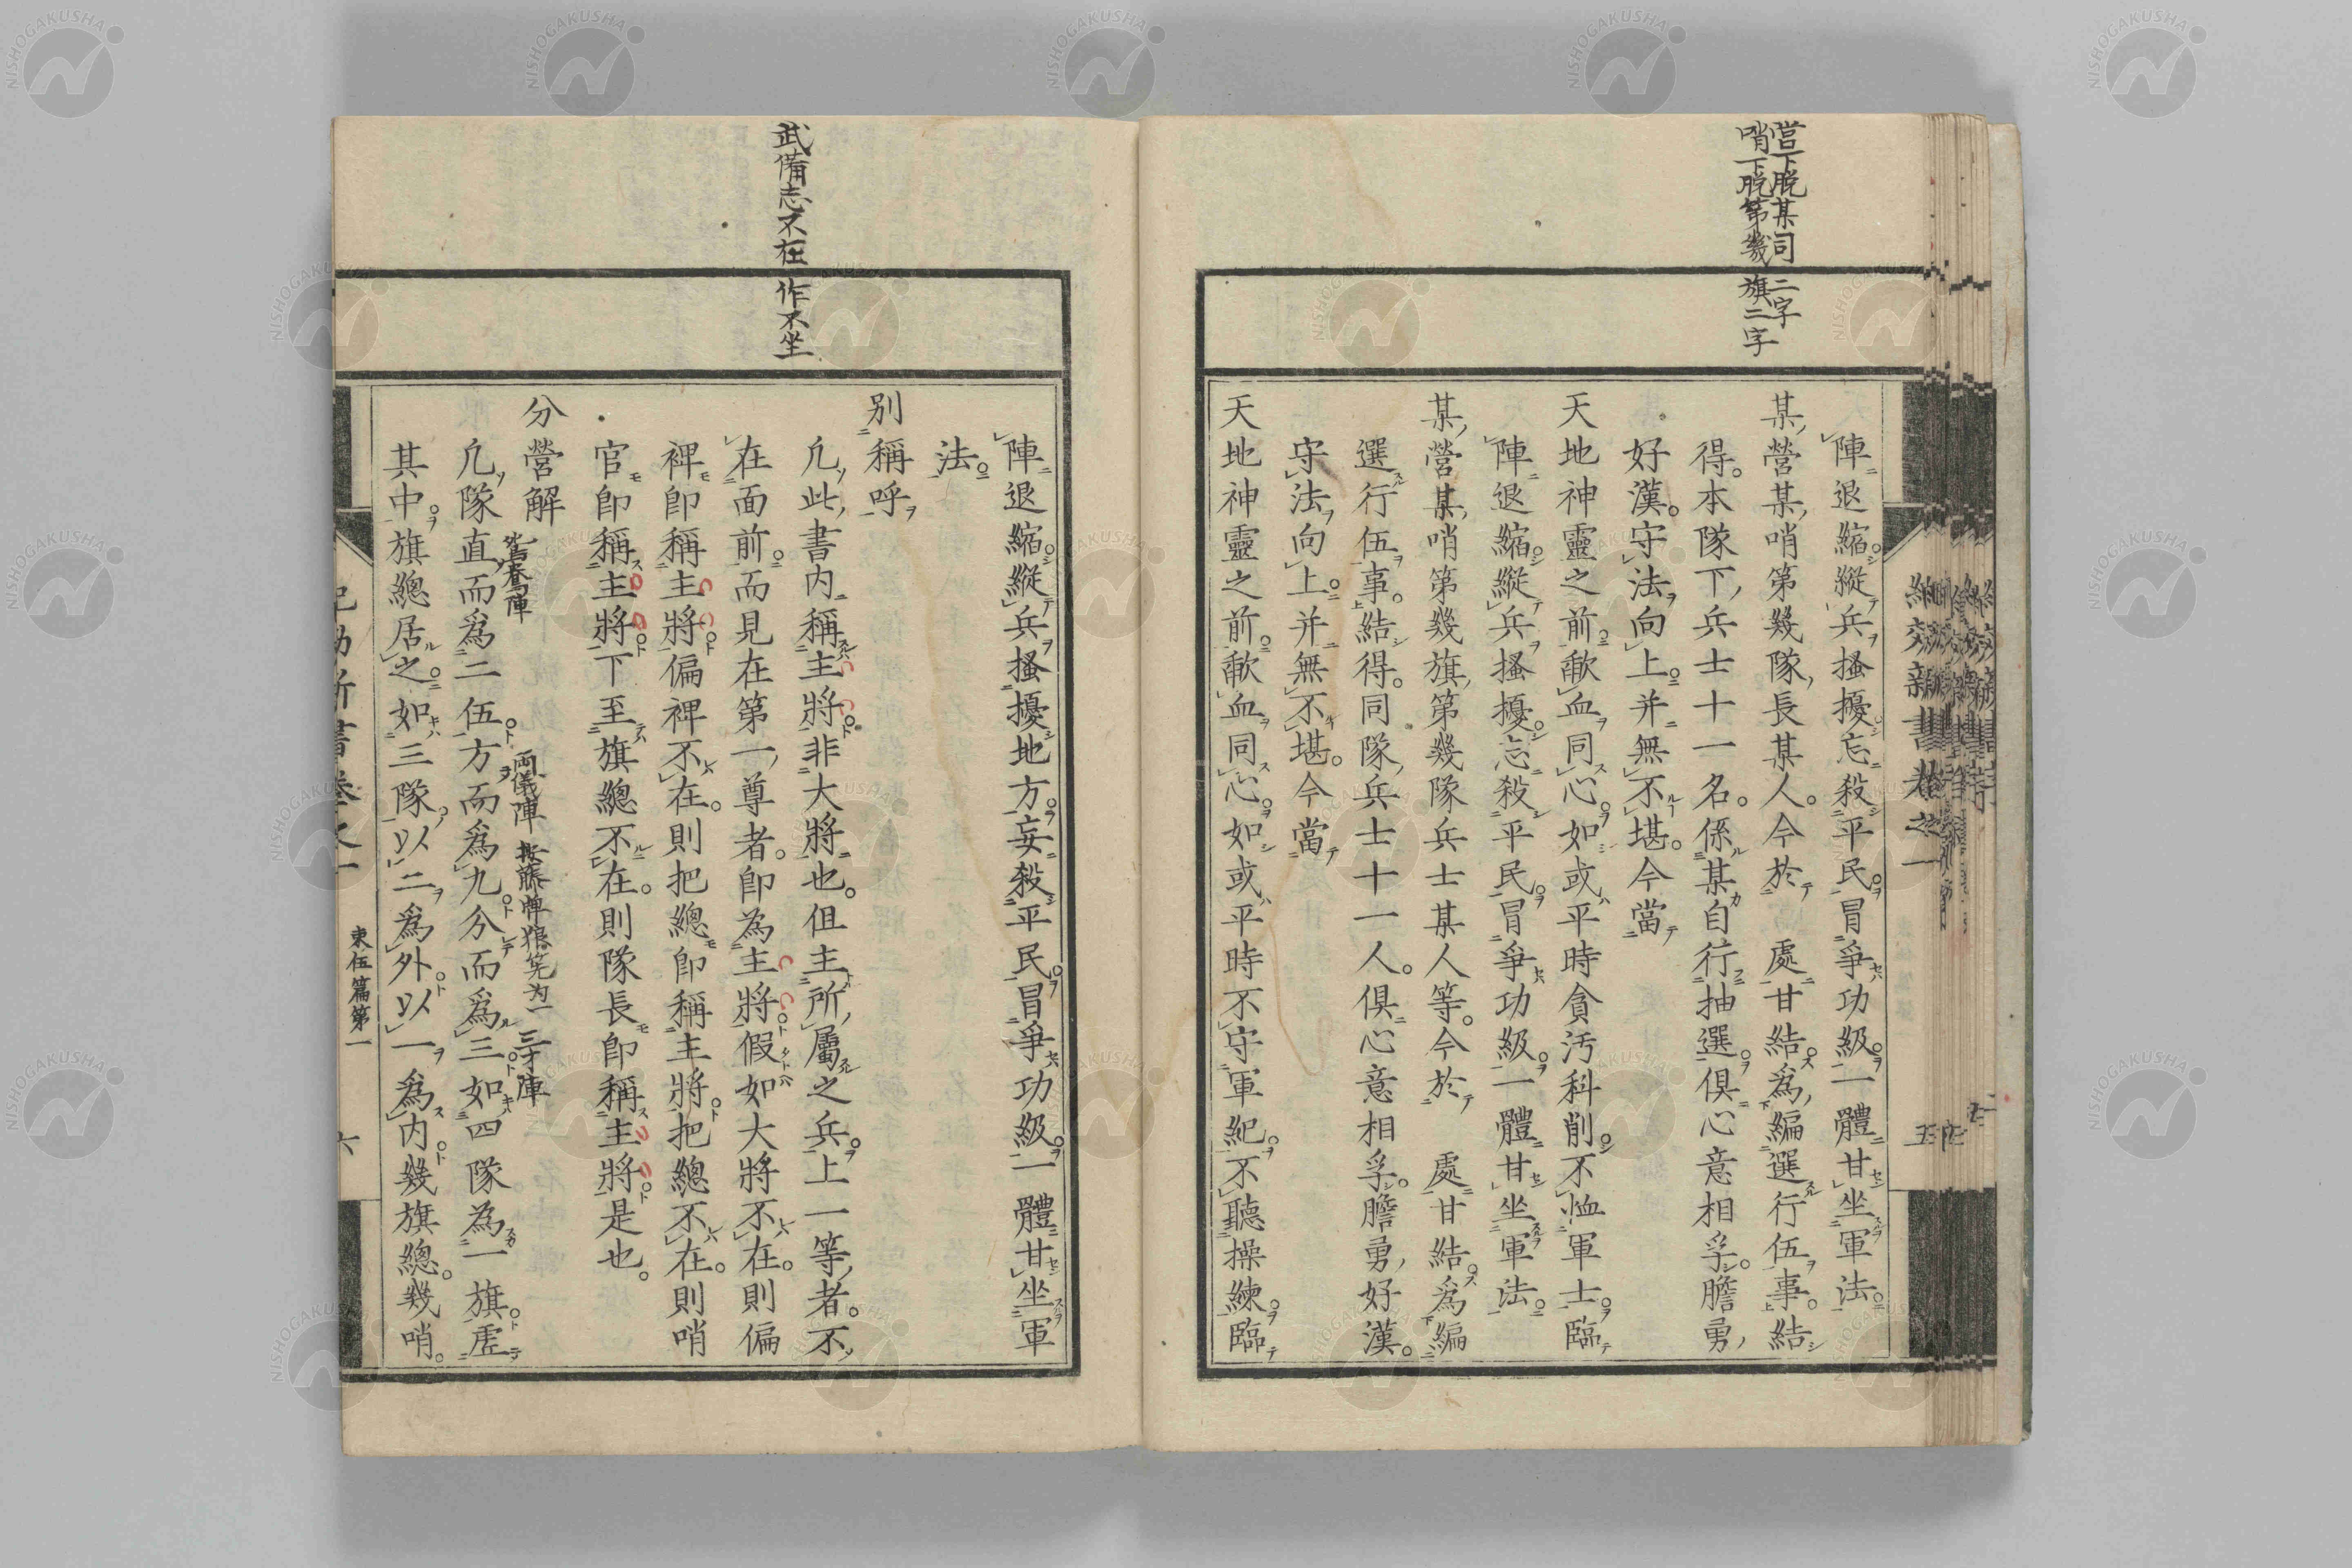 營下脱某司二字
哨下脱第幾旗三字
陣退縮縱兵搔擾忘殺平民冒爭功級一體甘坐軍法
某營某哨第幾隊長某人今於 處甘結爲編選行伍事結
得本隊下兵士十一名係某自行抽選俱心意相孚膽勇
好漢守法向上并無不堪今當
天地神靈之前歃血同心如或平時貪汚科削不恤軍士臨
陣退縮縱兵搔擾忘殺平民冒爭功級一體甘坐軍法
某營某哨第幾旗第幾隊兵士某人等今於 處甘結爲編
選行伍事結得同隊兵士十一人俱心意相孚膽勇好漢
守法向上并無不堪今當
天地神靈之前歃血同心如或平時不守軍紀不聽操練臨
武備志不在作不坐
陣退縮縱兵搔擾地方妄殺平民冒爭功級一體甘坐軍
法
別稱呼
凢此書内稱主將非大將也但主所屬之兵上一等者不
在面前而見在第一尊者卽為主將假如大將不在則偏
裨卽稱主將偏裨不在則把總卽稱主將把總不在則哨
官卽稱主將下至旗總不在則隊長卽稱主將是也
分營解
鴛鴦陣
兩儀陣
三才陣
凢隊直而爲二伍方而爲九分而爲三如四隊為一旗虛
其中旗總居之如三隊以二爲外以一爲内幾旗總幾哨
束伍篇第一
六